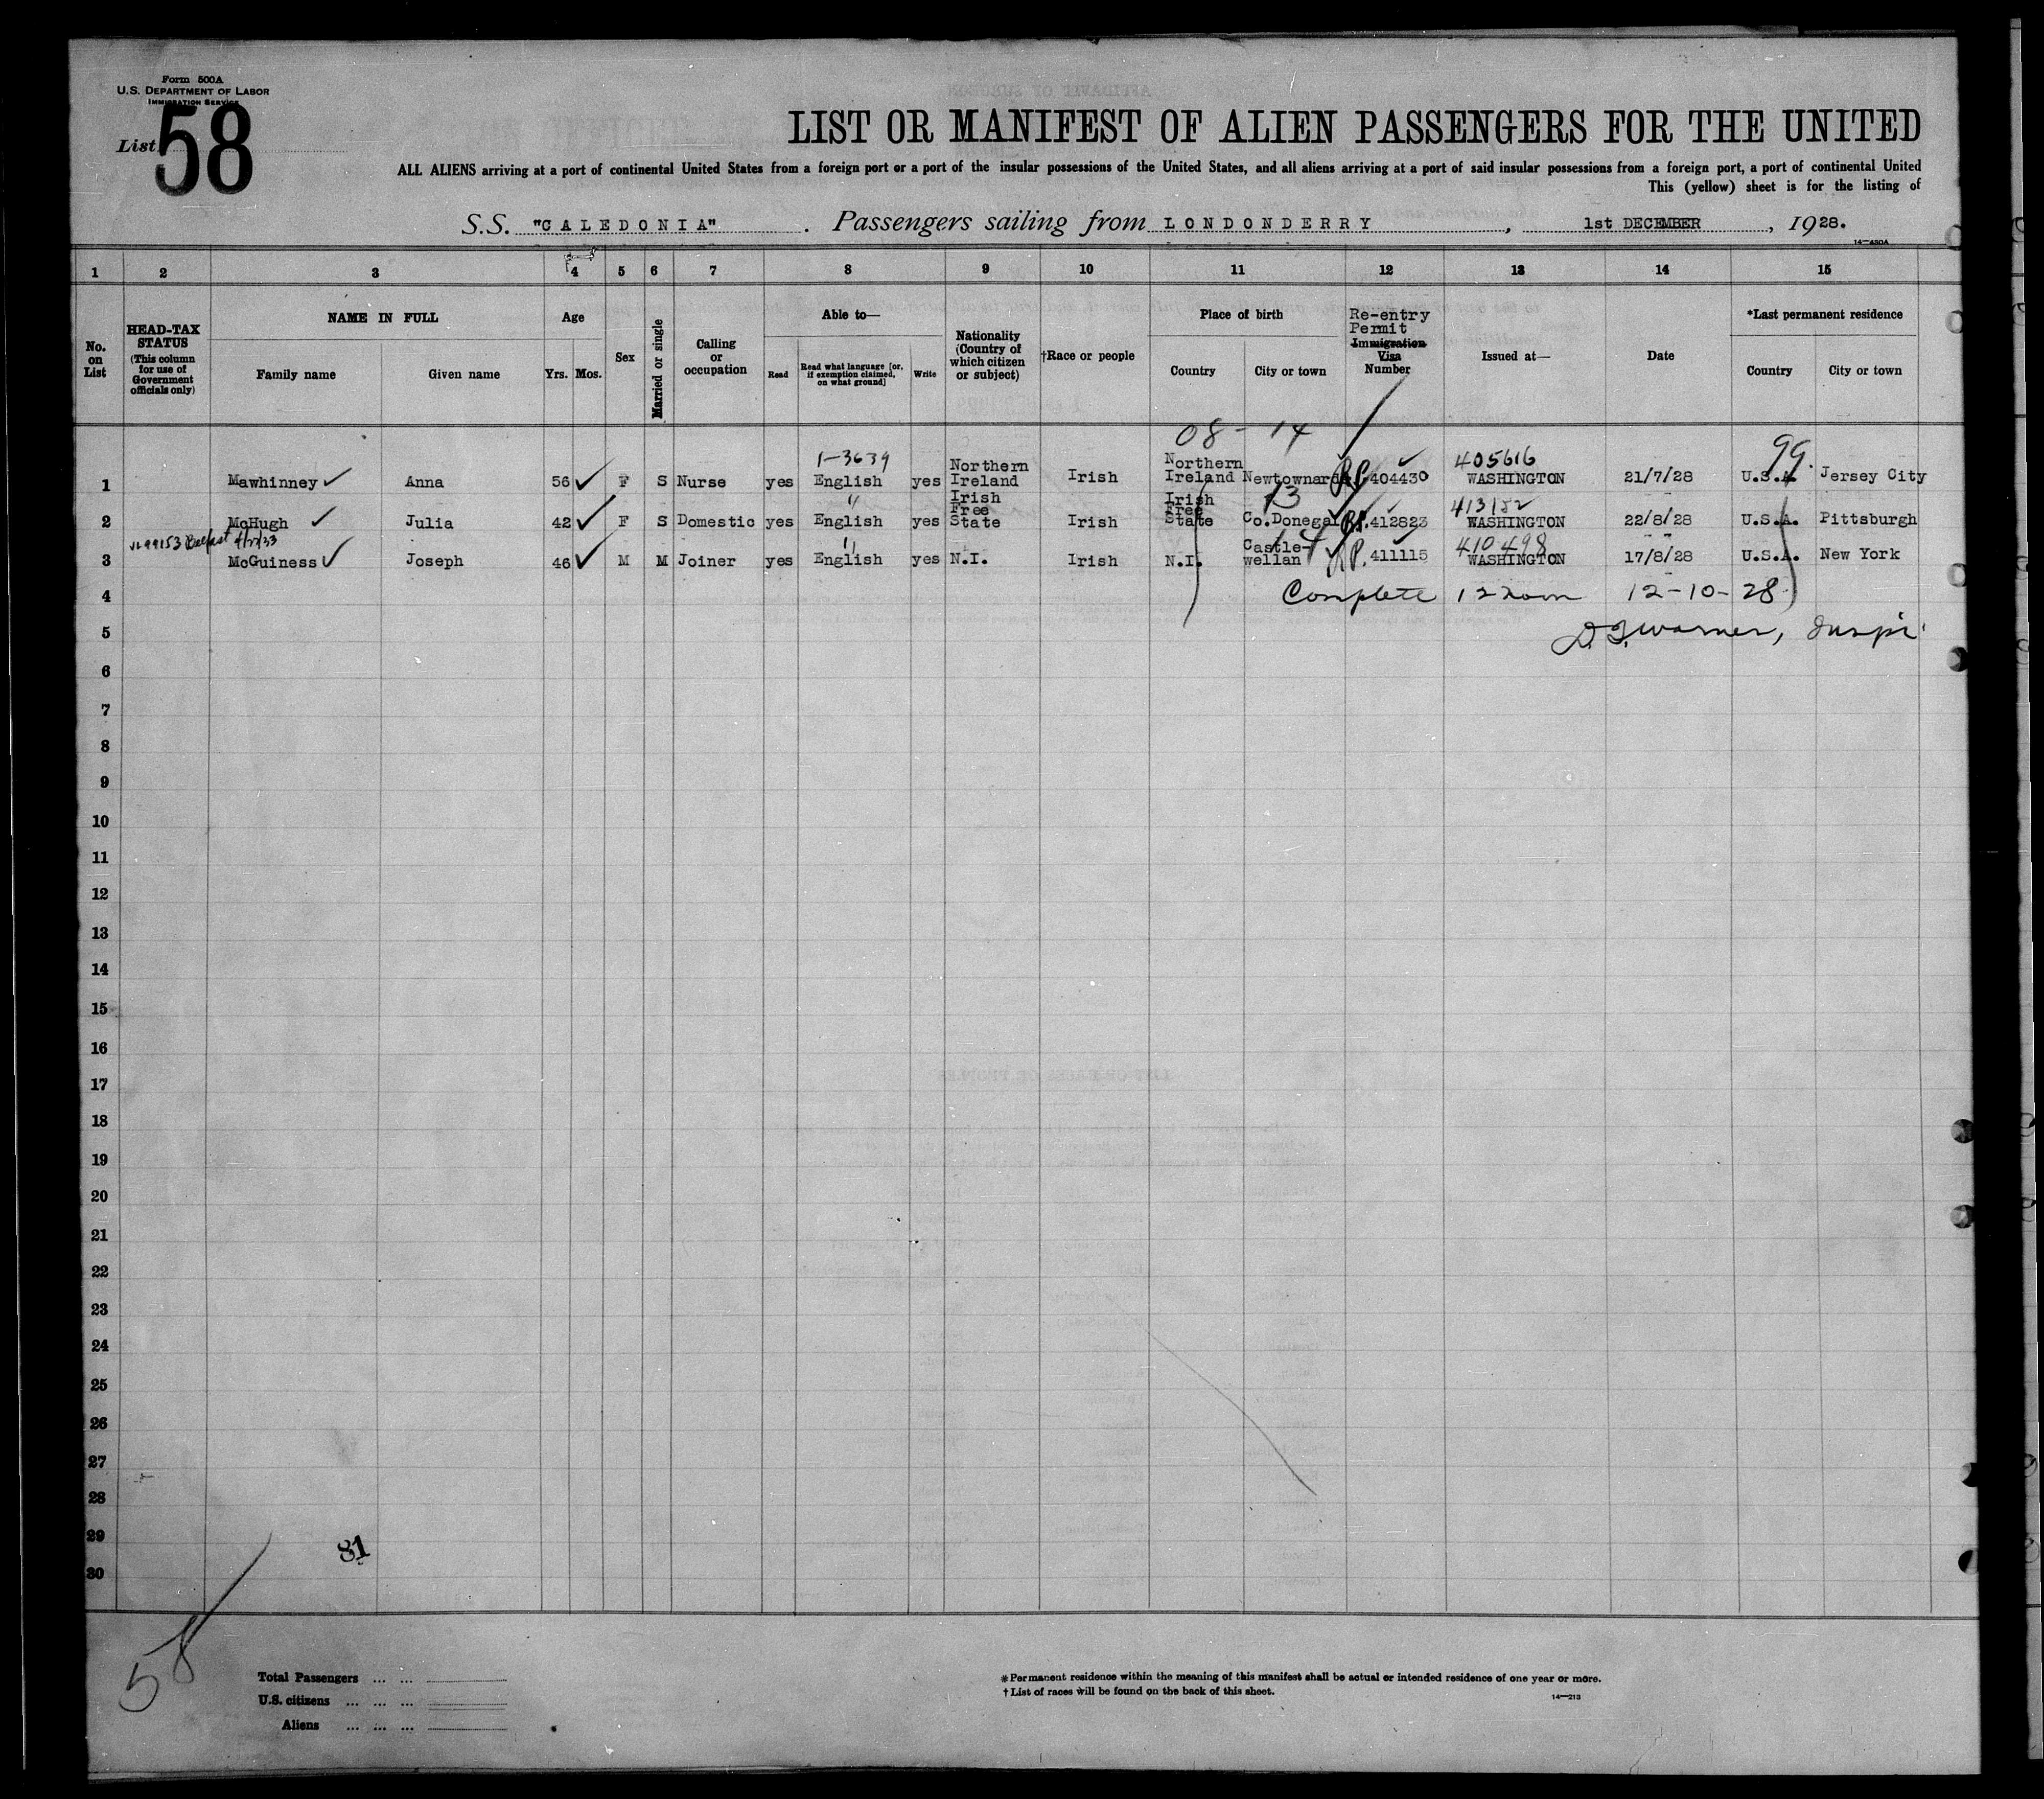 Form 500A
U.S. DEPARTMENT OF LABOR
IMMIGRATION SERVICE
List 58
LIST OR MANIFEST OF ALIEN PASSENGERS FOR THE UNITED
ALL ALIENS arriving at a port of continental United States from a foreign port or a port of the insular possessions of the United States, and all aliens arriving at a port of said insular possessions from a foreign port, a port of continental United
This (yellow) sheet is for the listing of
S.S. "CALEDONIA" . Passengers sailing from LONDONDERRY , 1st DECEMBER , 1928.
14—430A
1 2 3 4 5 6 7 8 9 10 11 12 13 14 15
No. on List
HEAD-TAX STATUS (This column for use of Government officials only)
NAME IN FULL
Family name Given name
Age
Yrs. Mos.
Sex
Married or single
Calling or occupation
Able to—
Read Read what language [or, if exemption claimed, on what ground] Write
Nationality (Country of which citizen or subject)
†Race or people
Place of birth
Country City or town
Re-entry Permit Immigration Visa Number
Issued at—
Date
*Last permanent residence
Country City or town
08 - 14
1-3639 405616 99.
1 Mawhinney ✓ Anna 56 ✓ F S Nurse yes English yes Northern Ireland Irish Northern Ireland Newtownards R.P. 404430 WASHINGTON 21/7/28 U.S.A. Jersey City
" 13 413152
2 McHugh ✓ Julia 42 ✓ F S Domestic yes English yes Irish Free State Irish Irish Free State Co.Donegal R.P. 412823 WASHINGTON 22/8/28 U.S.A. Pittsburgh
Belfast " 14 410498
3 McGuiness ✓ Joseph 46 ✓ M M Joiner yes English yes N.I. Irish N.I. Castle-wellan R.P. 411115 WASHINGTON 17/8/28 U.S.A. New York
4 Complete 12 noon 12-10-28
5 Warner, Inspr
6
7
8
9
10
11
12
13
14
15
16
17
18
19
20
21
22
23
24
25
26
27
28
29
81
30
58
Total Passengers ... ...
U.S. citizens ... ... ...
Aliens ... ... ...
*Permanent residence within the meaning of this manifest shall be actual or intended residence of one year or more.
†List of races will be found on the back of this sheet.
14—213